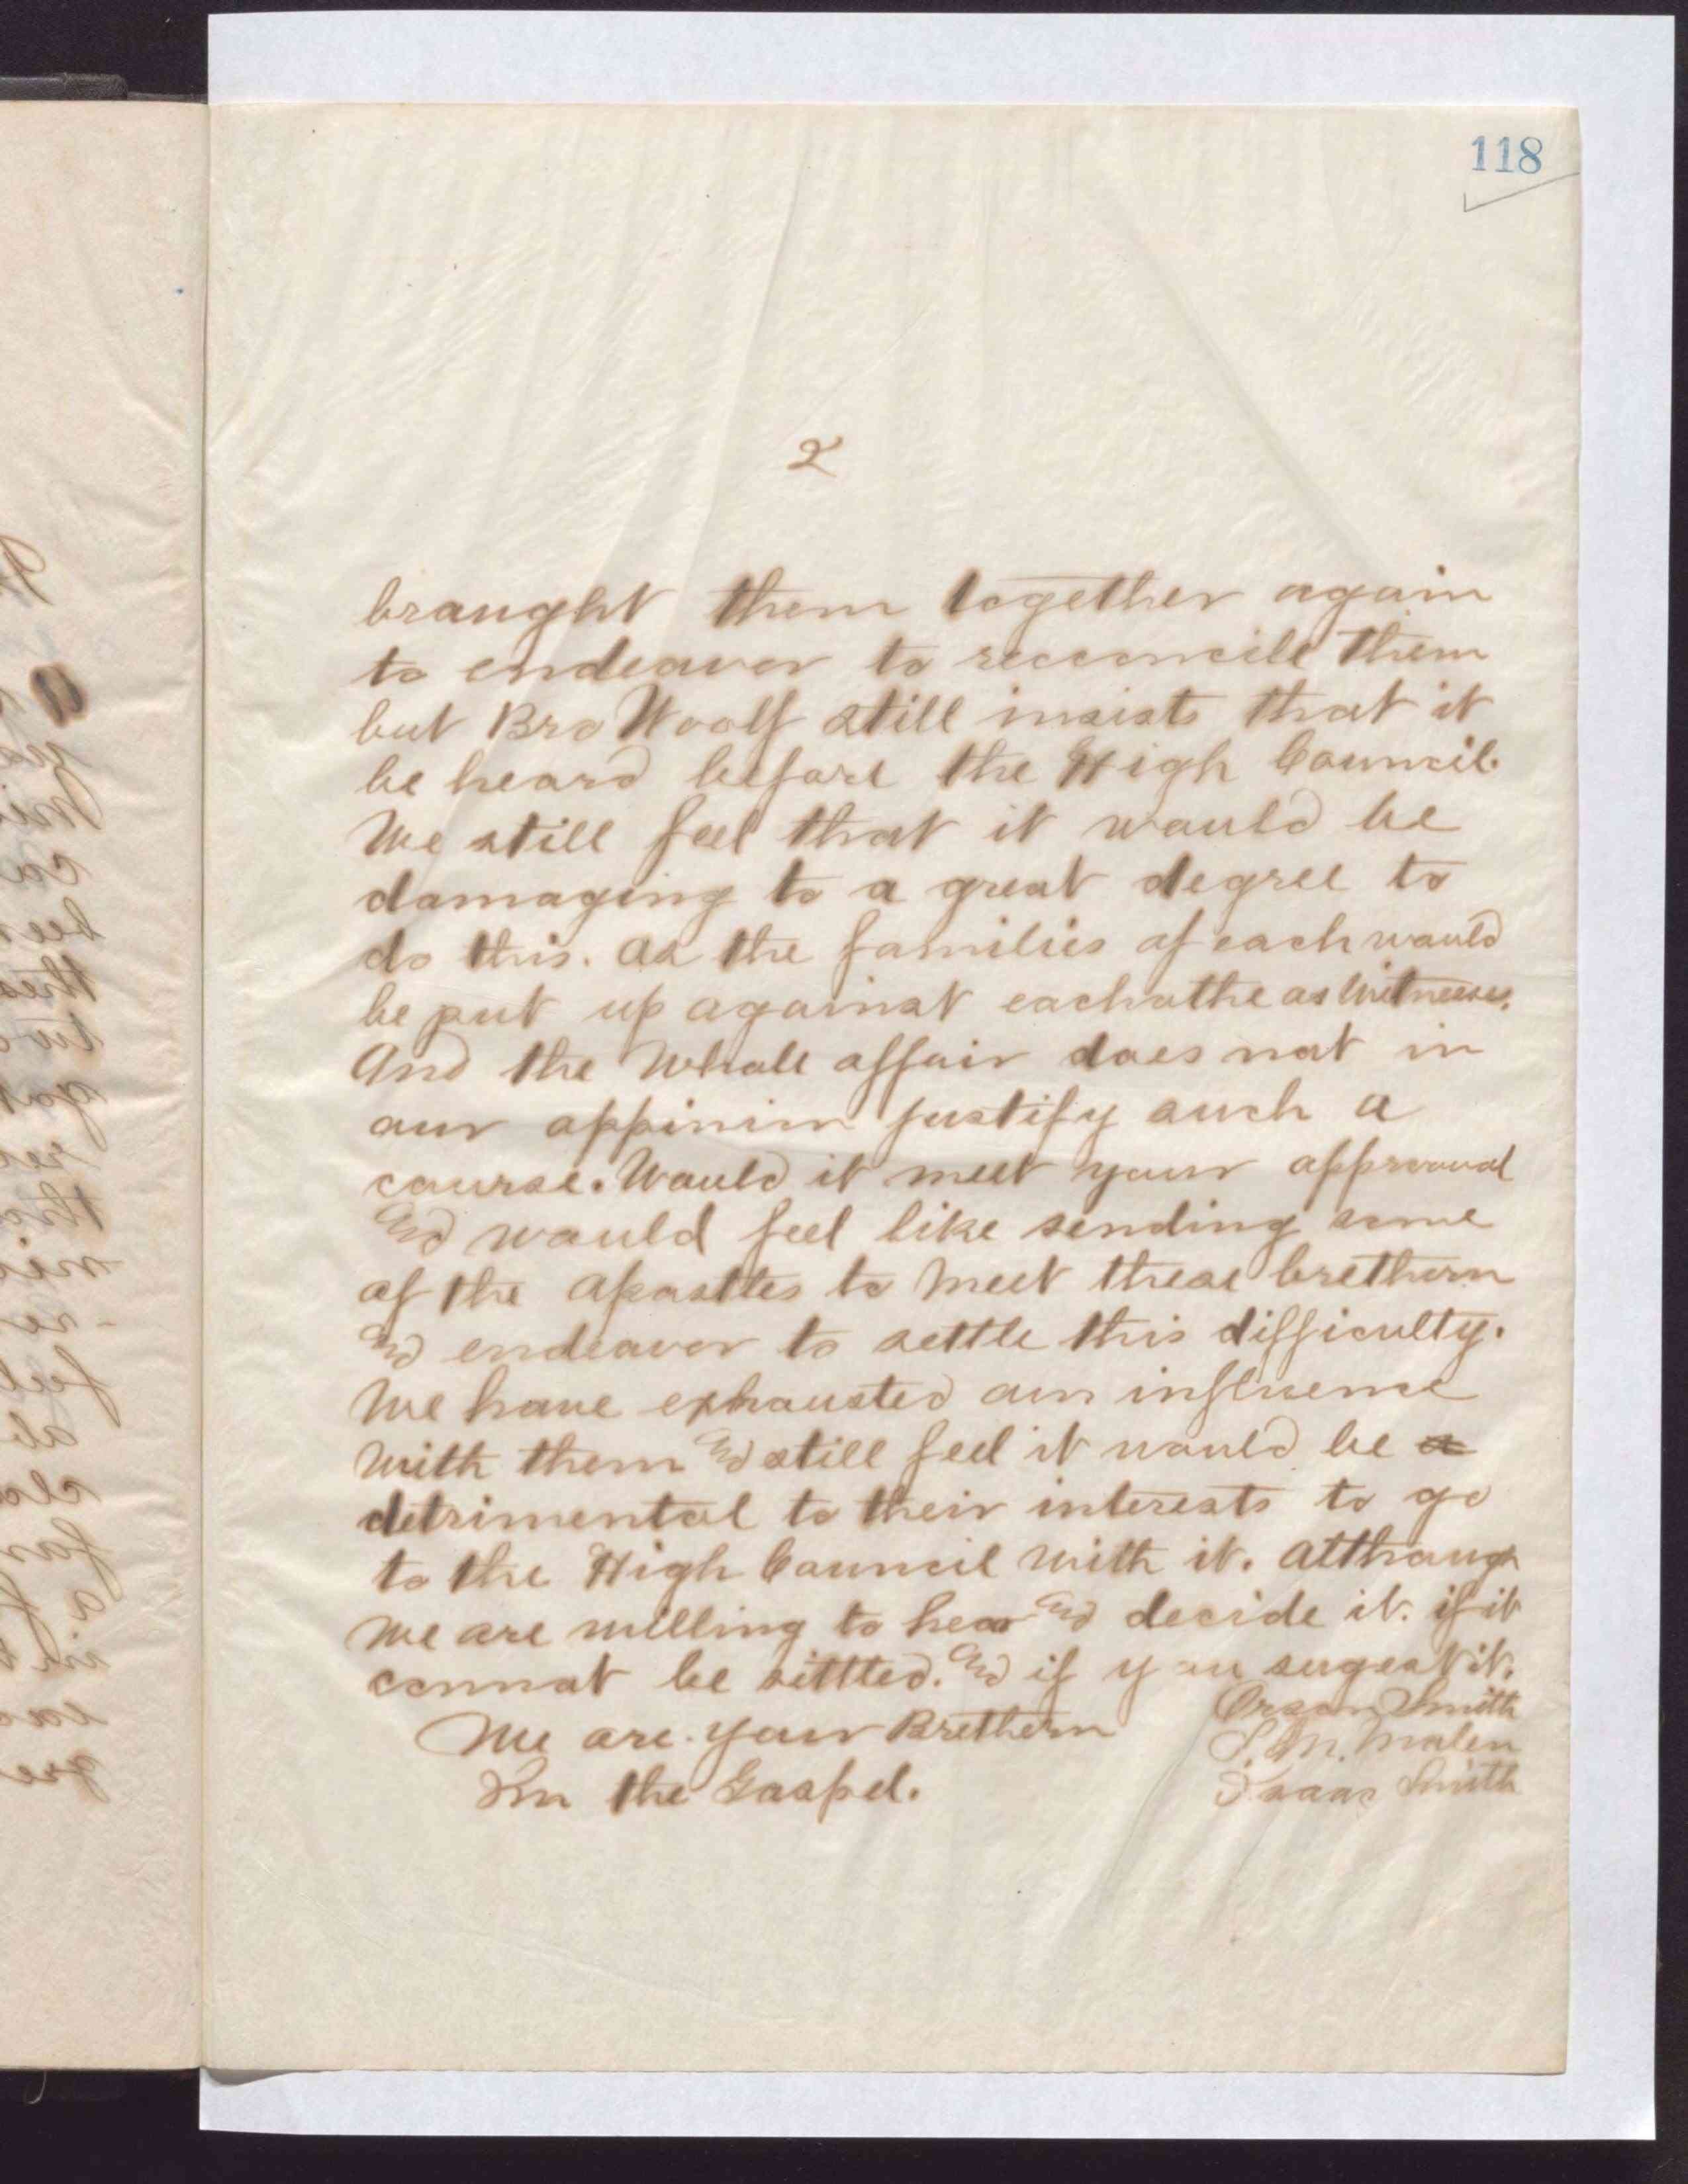 118
2
brought them together again
to endeavor to reconcile them
but Bro Woolf still insists that it
be heard before the High Council.
We still feel that it would be
damaging to a great degree to
do this. As the families of each would
be put up against eachothe as Witnesses.
And the Whole affair does not in
our oppinion justify such a
course. Would it meet your approval
And would feel like sending some
of the Apostles to meet these brethern
And endeavor to settle this difficulty.
We have exhausted our influence
with them And still feel it would be a
detrimental to their interests to go
to the High Council with it. Although
we are willing to hear And decide it. if it
cannot be settled. And if you sugest it.
We are. your Brethern
In the Gospel.
Orson Smith
S. M. Molen
Isaac Smith